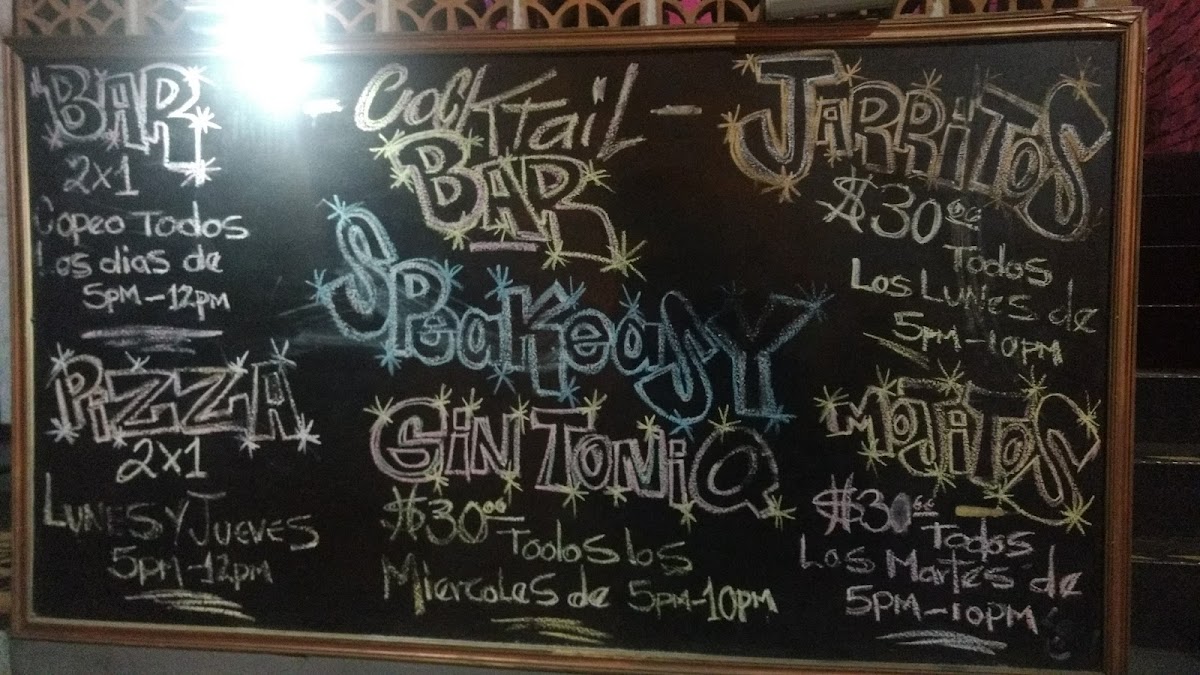 BAR
2x1
Copeo Todos
Los dias de
5pm-12pm
PIZZA
2x1
LUNES Y JUEVES
5pm-12pm
- COCKTAIL -
BAR
SPEAKEASY
GIN TONIQ
$30.00 Todos los
Miercoles de 5pm-10pm
JARRITOS
$30.00
Todos
Los LUNES de
5pm-10pm
MOJITOS
$30.00
Todos
Los Martes de
5pm-10pm